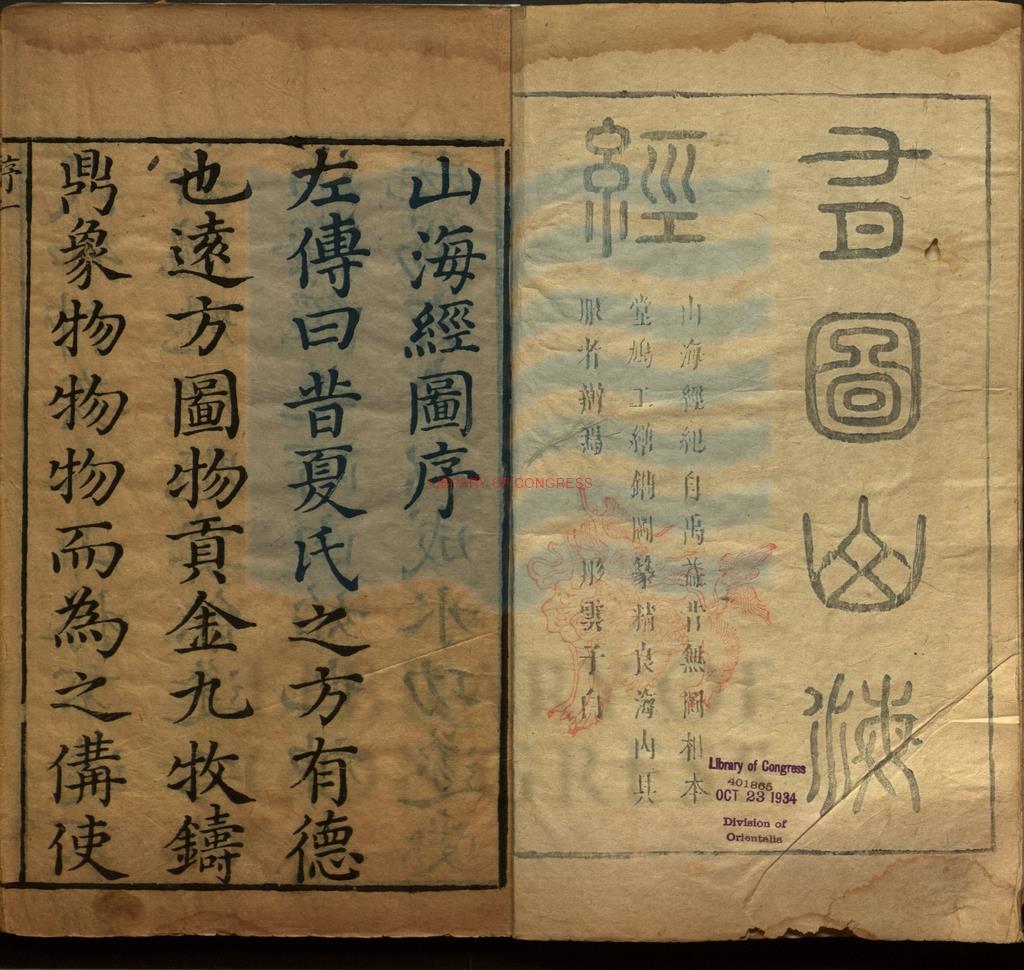 有圖山海
經
山海經紀自禹益昔無圖相本
堂鳩工繪鐫圖篆精良海內具
眼者辨焉 彤雲子白
Library of Congress
401865
OCT 23 1934
Division of
Orientalia
LIBRARY OF CONGRESS
山海經圖序
左傳曰昔夏氏之方有德
也遠方圖物貢金九牧鑄
鼎象物物物而為之備使
序一